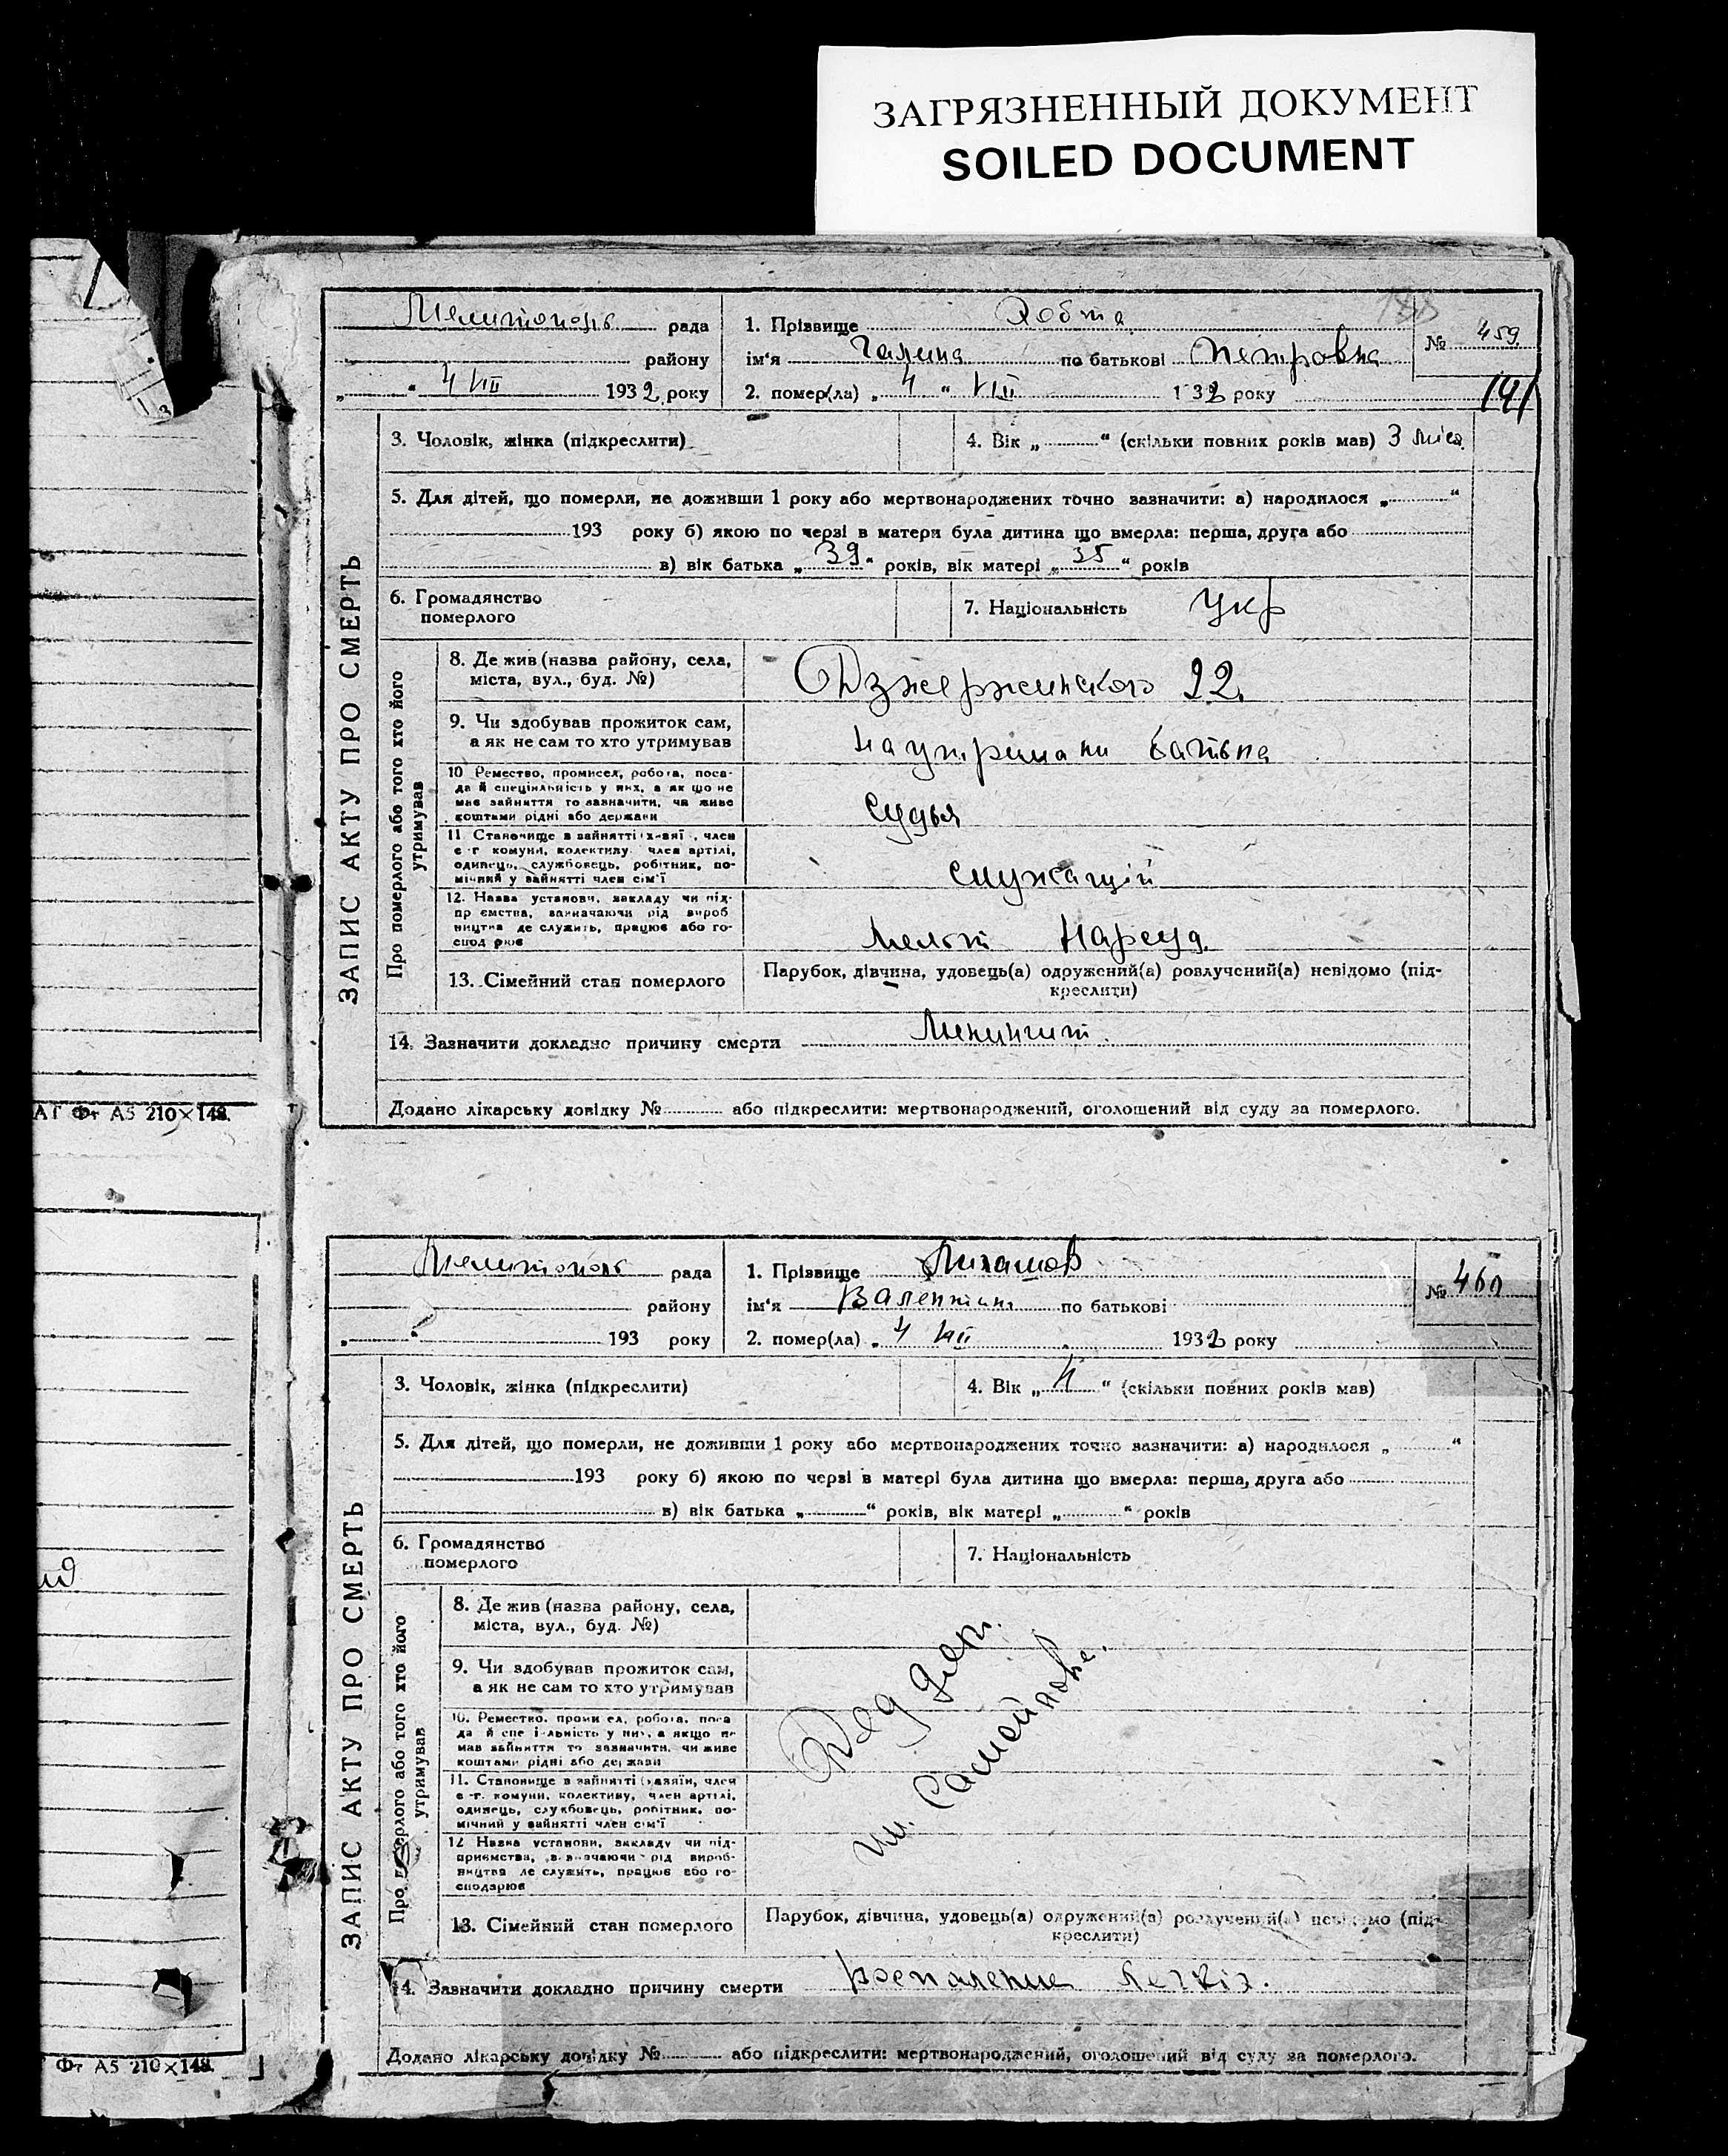 ЗАГРЯЗНЕННЫЙ ДОКУМЕНТ
SOILED DOCUMENT
ЗАПИС АКТУ ПРО СМЕРТЬ
Мелитополь рада
району
„ “ 4 VIII 1932 року
1. Прізвище
ім'я Галина по батькові Петровна
2. помер(ла) „ 4 “ VIII 1932 року
№ 459
141
3. Чоловік, жінка (підкреслити)
4. Вік „ “ (скільки повних років мав) 3 міся
5. Для дітей, що померли, не доживши 1 року або мертвонароджених точно зазначити: а) народилося „ “
193 року б) якою по черзі в матери була дитина що вмерла: перша, друга або
в) вік батька „ 39 “ років, вік матері „ 35 “ років
6. Громадянство
померлого
7. Національність укр
Про померлого або того хто його
утримував
8. Де жив (назва району, села,
міста, вул., буд. №)
Дзержинского 22.
9. Чи здобував прожиток сам,
а як не сам то хто утримував
на утримани батька
10 Ремество, промисел, робота, поса-
да й спеціяльність у них, а як що не
має зайняття то зазначити, чи живе
коштами рідні або держави
Судья
11 Становище в зайнятті член
с-г комуни, колективу член артілі,
одинець, службовець, робітник, по-
мічний у зайнятті член сім'ї
служащій
12. Назва установи, закладу чи під-
пр ємства, зазначаючи рід вироб
ництва де служить, працює або го-
спод рює
Мелит Нарсуд.
13. Сімейний стан померлого
Парубок, дівчина, удовець(а) одружений(а) розлучений(а) невідомо (під-
креслити)
14. Зазначити докладно причину смерти Минингит
Додано лікарську довідку № або підкреслити: мертвонароджений, оголошений від суду за померлого.
АГ Фт А5 210×148.
ЗАПИС АКТУ ПРО СМЕРТЬ
Мелитополь рада
району
„ “ 193 року
1. Прізвище
ім'я Валентин по батькові
2. помер(ла) „ 4 VIII 1932 року
№ 460
3. Чоловік, жінка (підкреслити)
4. Вік „ “ (скільки повних років мав)
5. Для дітей, що померли, не доживши 1 року або мертвонароджених точно зазначити: а) народилося „ “
193 року б) якою по черзі в матері була дитина що вмерла: перша, друга або
в) вік батька „ “ років, вік матері „ “ років
6. Громадянство
померлого
7. Національність
Про померлого або того хто його
утримував
8. Де жив (назва району, села,
міста, вул., буд. №)
9. Чи здобував прожиток сам,
а як не сам то хто утримував
10. Ремество, проми ел, робота, поса
да й спе і льність у них, а якщо не
мав зайняття то зазначити, чи живе
коштами рідні або держави
11. Становище в зайнятті (хазяїн, член
с-г. комуни, колективу, член артілі,
одинець, службовець, робітник, по-
мічний у зайнятті член сім'ї
12 Назва установи, закладу чи під-
приємства, зазначаючи рід вироб-
ництва де служить, працює або го-
сподарює
13. Сімейний стан померлого
Парубок, дівчина, удовець(а) одружений(а) розлучений(а) невідомо (під-
креслити)
14. Зазначити докладно причину смерти воспаление легкіх.
Додано лікарську довідку № або підкреслити: мертвонароджений, оголошений від суду за померлого.
Фт А5 210×148.